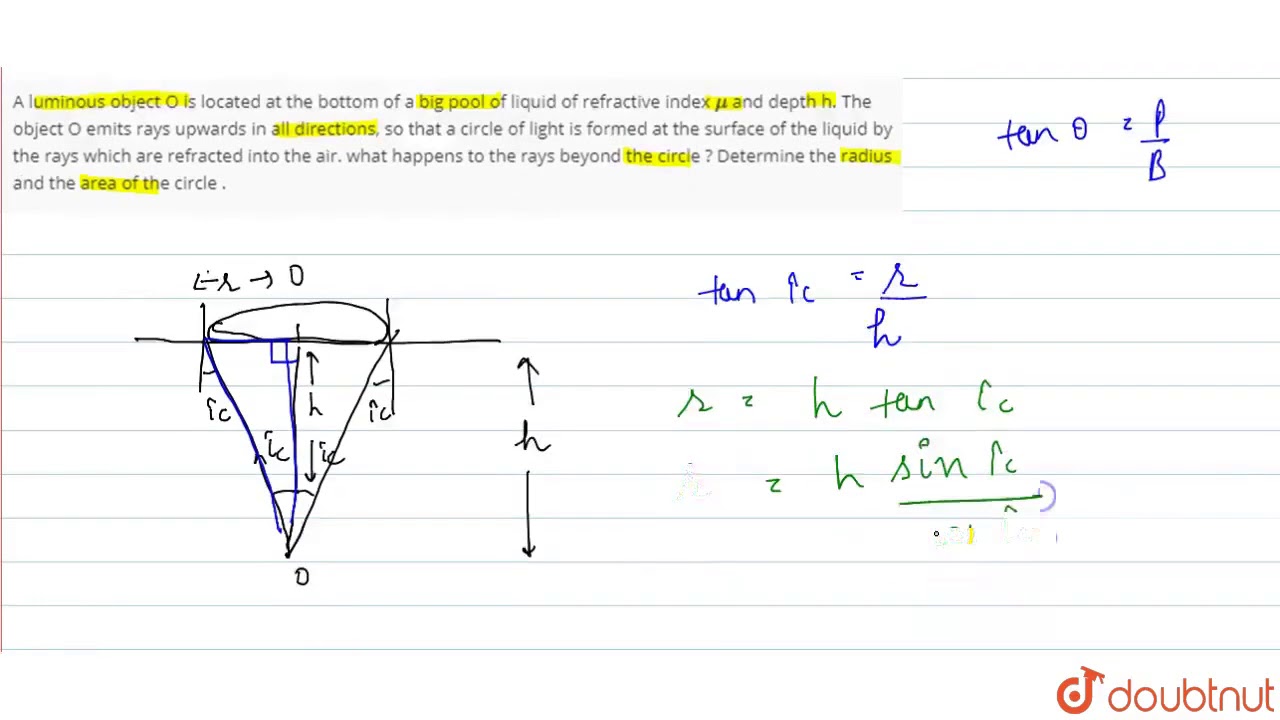 A luminous object O is located at the bottom of a big pool of liquid of refractive index μ and depth h. The
object O emits rays upwards in all directions, so that a circle of light is formed at the surface of the liquid by
the rays which are refracted into the air. what happens to the rays beyond the circle ? Determine the radius
and the area of the circle .
tan θ = P/B
←r→ O
tan ic = r/h
h
ic
ic
h
r = h tan ic
ic
ic
= h sin ic
O
doubtnut